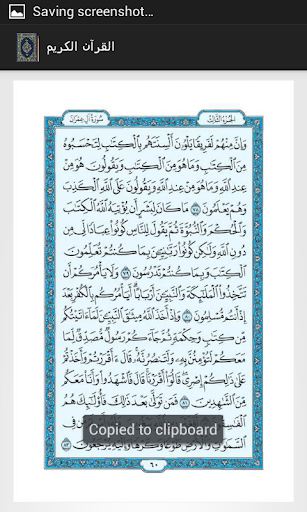 Saving screenshot...
القرآن الكريم
الجزء الثالث
سورة آل عمران
وَإِنَّ مِنْهُمْ لَفَرِيقًا يَلْوُۥنَ أَلْسِنَتَهُم بِٱلْكِتَٰبِ لِتَحْسَبُوهُ
مِنَ ٱلْكِتَٰبِ وَمَا هُوَ مِنَ ٱلْكِتَٰبِ وَيَقُولُونَ هُوَ
مِنْ عِندِ ٱللَّهِ وَمَا هُوَ مِنْ عِندِ ٱللَّهِ وَيَقُولُونَ عَلَى ٱللَّهِ ٱلْكَذِبَ
وَهُمْ يَعْلَمُونَ ٧٨ مَا كَانَ لِبَشَرٍ أَن يُؤْتِيَهُ ٱللَّهُ ٱلْكِتَٰبَ
وَٱلْحُكْمَ وَٱلنُّبُوَّةَ ثُمَّ يَقُولَ لِلنَّاسِ كُونُوا۟ عِبَادًا لِّى مِن
دُونِ ٱللَّهِ وَلَٰكِن كُونُوا۟ رَبَّٰنِيِّۦنَ بِمَا كُنتُمْ تُعَلِّمُونَ
ٱلْكِتَٰبَ وَبِمَا كُنتُمْ تَدْرُسُونَ ٧٩ وَلَا يَأْمُرَكُمْ أَن
تَتَّخِذُوا۟ ٱلْمَلَٰٓئِكَةَ وَٱلنَّبِيِّۦنَ أَرْبَابًا أَيَأْمُرُكُم بِٱلْكُفْرِ بَعْدَ
إِذْ أَنتُم مُّسْلِمُونَ ٨٠ وَإِذْ أَخَذَ ٱللَّهُ مِيثَٰقَ ٱلنَّبِيِّۦنَ لَمَآ ءَاتَيْتُكُم
مِّن كِتَٰبٍ وَحِكْمَةٍ ثُمَّ جَآءَكُمْ رَسُولٌ مُّصَدِّقٌ لِّمَا
مَعَكُمْ لَتُؤْمِنُنَّ بِهِۦ وَلَتَنصُرُنَّهُۥ قَالَ ءَأَقْرَرْتُمْ وَأَخَذْتُمْ
عَلَىٰ ذَٰلِكُمْ إِصْرِى قَالُوٓا۟ أَقْرَرْنَا قَالَ فَٱشْهَدُوا۟ وَأَنَا۠ مَعَكُم
مِّنَ ٱلشَّٰهِدِينَ ٨١ فَمَن تَوَلَّىٰ بَعْدَ ذَٰلِكَ فَأُو۟لَٰٓئِكَ هُمُ
ٱلْفَٰسِقُونَ ٨٢ مَن فِى
ٱلسَّمَٰوَٰتِ وَٱلْأَرْضِ طَوْعًا وَكَرْهًا وَإِلَيْهِ يُرْجَعُونَ ٨٣
Copied to clipboard
٦٠